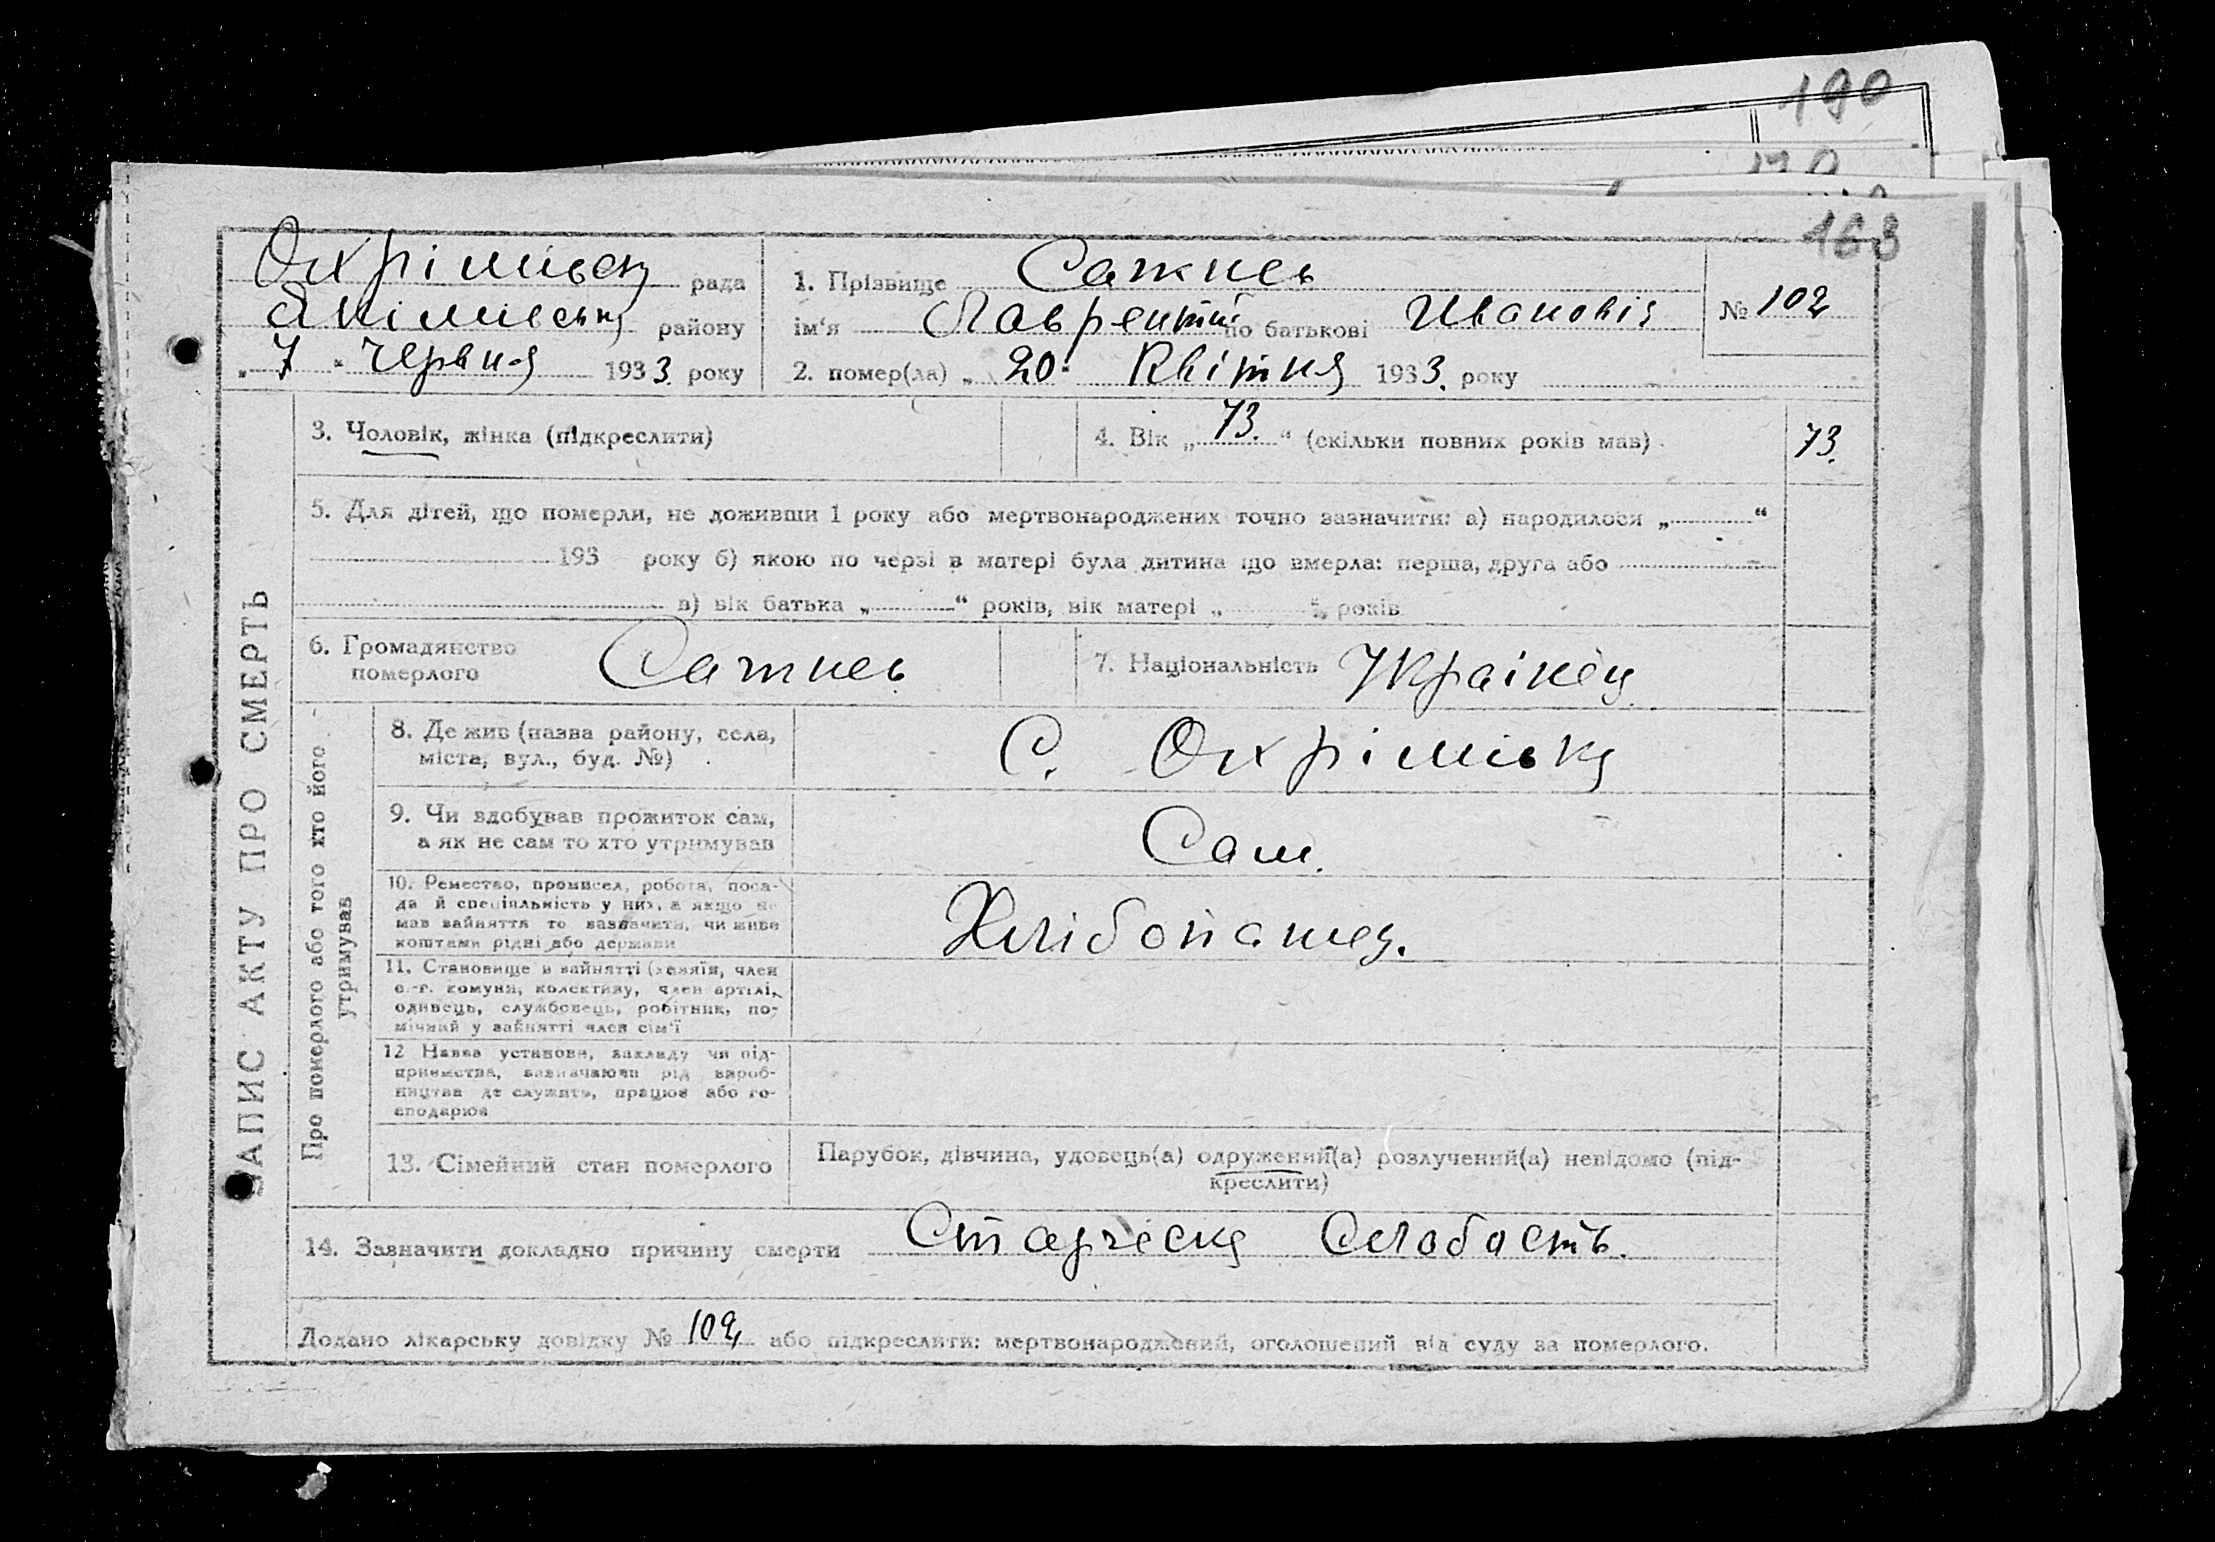 190
163
Охрімівськ рада
Якімивськ району
„ 7 “ Червня 1933 року
1. Прізвище Сажнев
ім‘я Лаврентій по батькові Иванович
№ 102
2. помер(ла) „ 20 “ Квітня 1933. року
ЗАПИС АКТУ ПРО СМЕРТЬ
3. Чоловік, жінка (підкреслити)
4. Вік „ 73. “ (скільки повних років мав)
73.
5. Для дітей, що померли, не доживши 1 року або мертвонароджених точно зазначити: а) народилося „ “
193 року б) якою по черзі в матері була дитина що вмерла: перша, друга або
в) вік батька „ “ років, вік матері „ “ років
6. Громадянство
померлого
Сажнев
7. Національність Украінец
Про померлого або того хто його
утримував
8. Де жив (назва району, села,
міста, вул., буд. №)
С. Охрімівка
9. Чи здобував прожиток сам,
а як не сам то хто утримував
Сам.
10. Ремество, промисел, робота, поса-
да й спеціальність у них, а якщо не
мав зайняття то зазначити, чи живе
коштами рідні або держави
Хлібопашец.
11. Становище в зайнятті (хазяїн, член
с.-г. комуни, колективу, член артілі,
одинець, службовець, робітник, по-
мічний у зайнятті член сім‘ї
12 Назва установи, закладу чи під-
приємства, зазначаючи рід вироб-
ництва де служить, працює або го-
сподарює
13. Сімейний стан померлого
Парубок, дівчина, удовець(а) одружений(а) розлучений(а) невідомо (під-
креслити)
14. Зазначити докладно причину смерти Старческа Слабость.
Додано лікарську довідку № 102 або підкреслити: мертвонароджений, оголошений від суду за померлого.